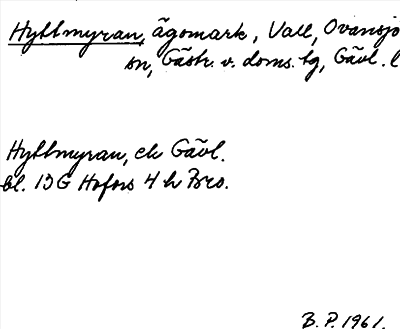 Hyttmyran, ägomark, Vall, Ovansjö
sn, Gästr. v. doms. tg, Gävl. l
Hyttmyran, ek Gävl.
bl. 13G Hofors 4 h Bro.
B.P. 1961.